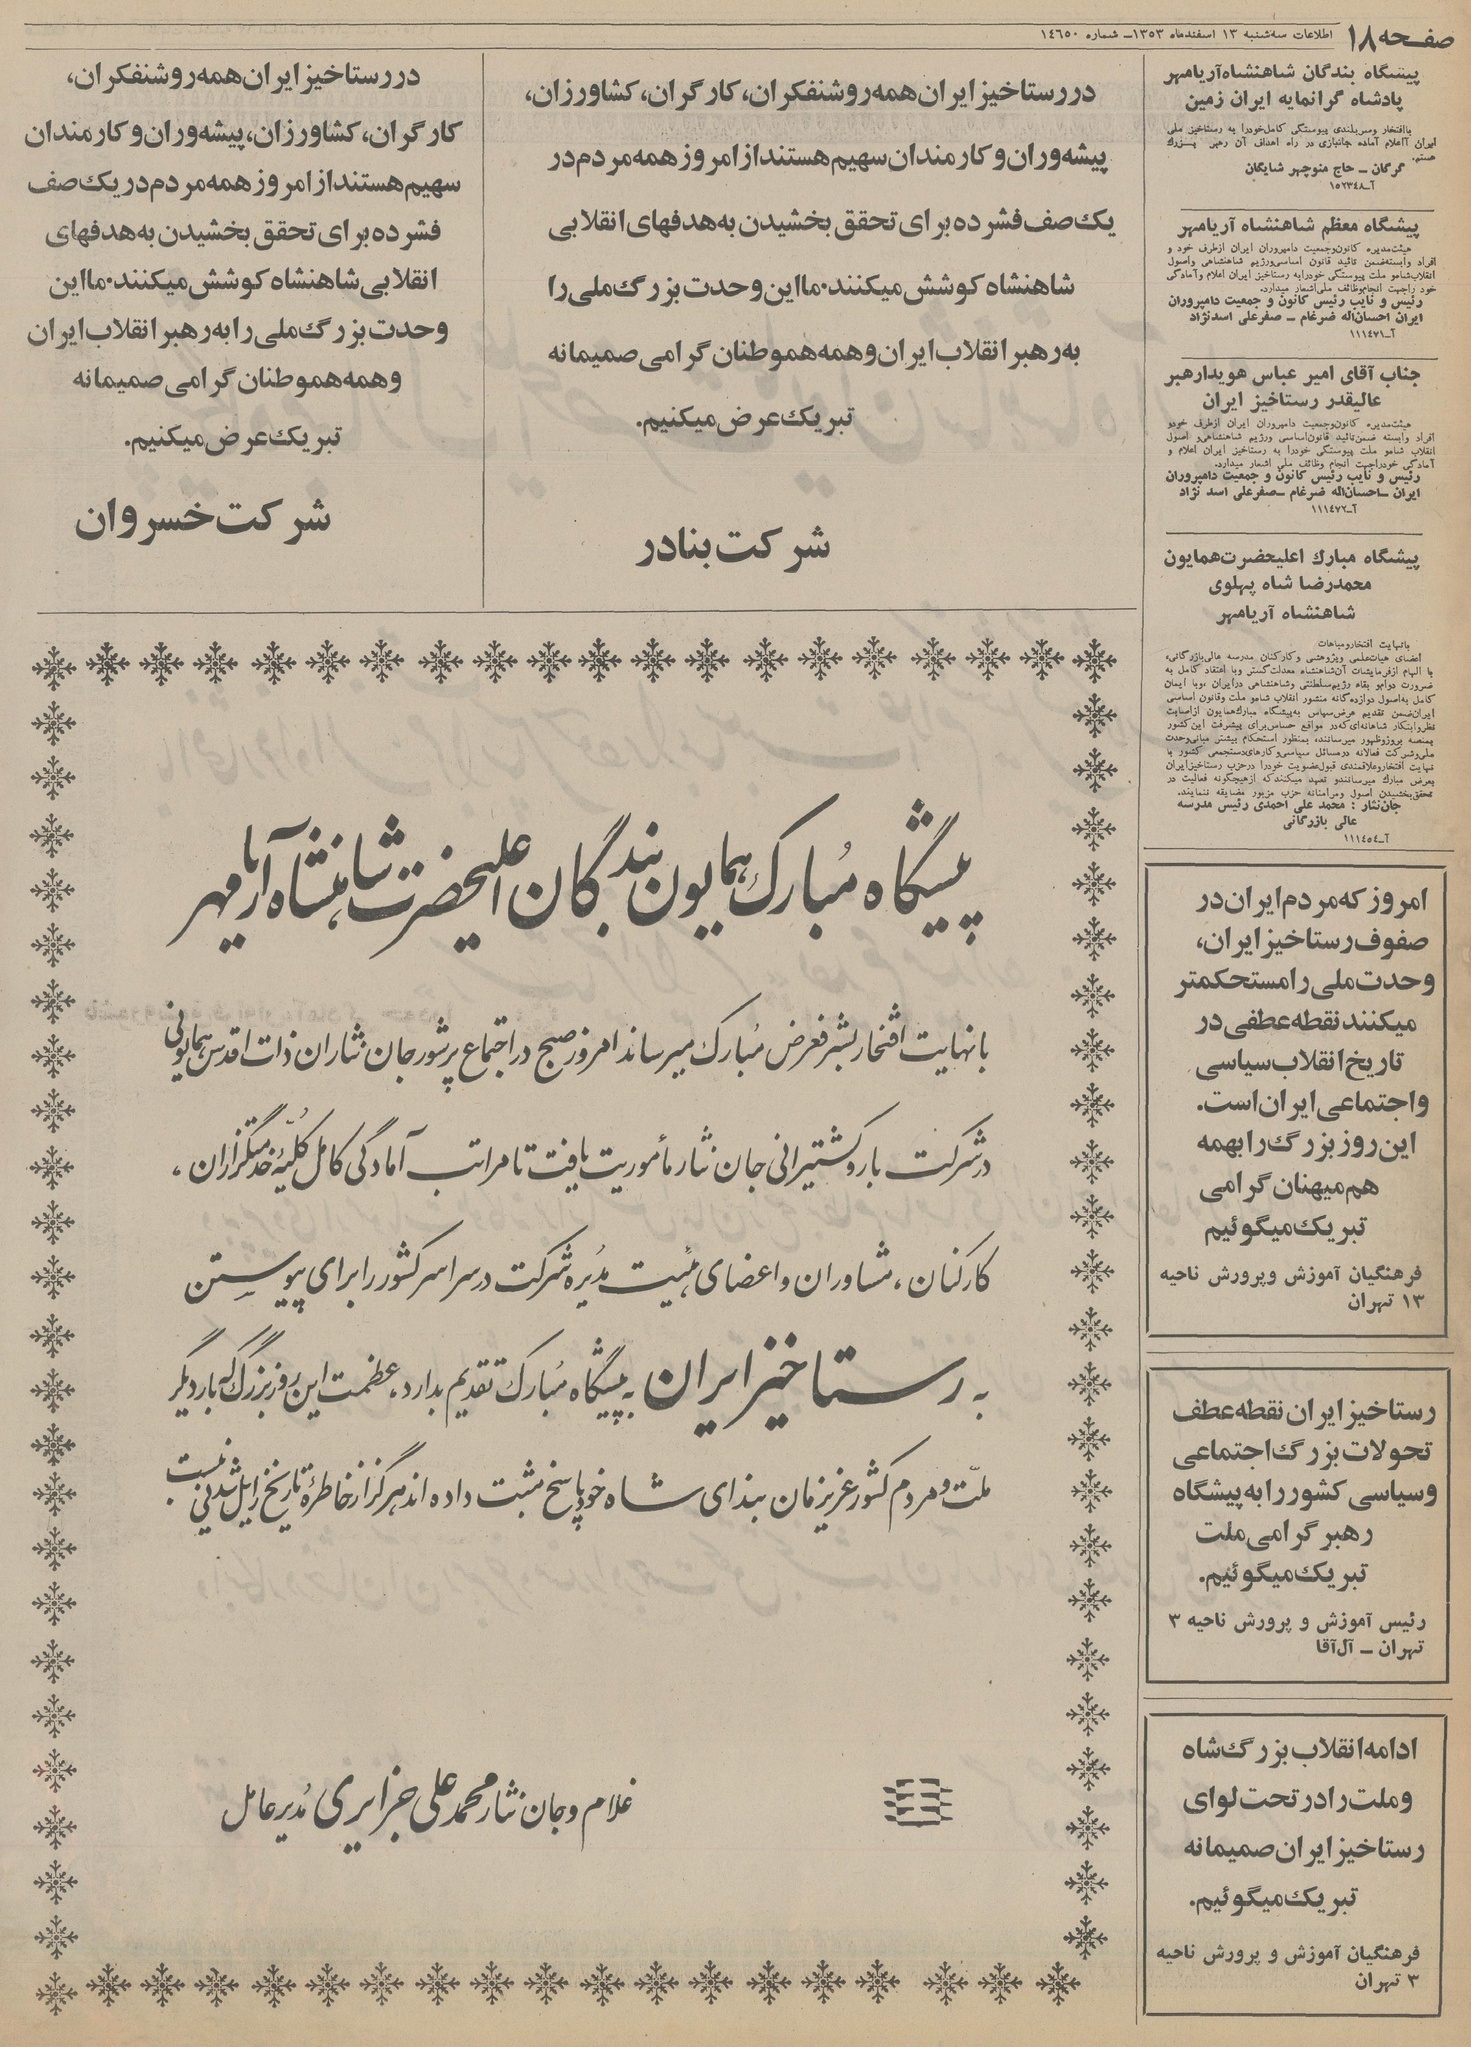 صفحه ۱۸
اطلاعات سه‌شنبه ۱۳ اسفندماه ۱۳۵۳ـ شماره ۱۴۶۵۰
پیشگاه بندگان شاهنشاه آریامهر
پادشاه گرانمایه ایران زمین
باافتخار وسربلندی پیوستگی کامل خودرا به رستاخیز ملی
ایران اعلام آماده جانبازی در راه اهداف آن رهبر بزرگ
هستم.
گرگان ـ حاج منوچهر شایگان
آـ۱۵۲۳۴۸
پیشگاه معظم شاهنشاه آریامهر
هیئت‌مدیره کانون‌وجمعیت دامپروران ایران ازطرف خود و
افراد وابسته‌ضمن تائید قانون اساسی‌ورژیم شاهنشاهی واصول
انقلاب‌شاه‌و ملت پیوستگی خودرابه رستاخیز ایران اعلام وآمادگی
خود راجهت انجام‌وظائف ملی‌اشعار میدارد.
رئیس و نایب رئیس کانون و جمعیت دامپروران
ایران احسان‌اله ضرغام ـ صفرعلی اسدنژاد
آـ۱۱۱۴۷۱
جناب آقای امیر عباس هویدارهبر
عالیقدر رستاخیز ایران
هیئت‌مدیره کانون‌وجمعیت دامپروران ایران ازطرف خودو
افراد وابسته ضمن‌تائید قانون‌اساسی ورژیم شاهنشاهی‌و اصول
انقلاب شاه‌و ملت پیوستگی خودرا به رستاخیز ایران اعلام و
آمادگی خودراجهت انجام وظائف ملی اشعار میدارد.
رئیس و نایب رئیس کانون و جمعیت دامپروران
ایران ـاحسان‌اله ضرغام ـصفرعلی اسد نژاد
آـ۱۱۱۴۷۲
پیشگاه مبارک اعلیحضرت‌همایون
محمدرضا شاه پهلوی
شاهنشاه آریامهر
بانهایت افتخارومباهات
اعضای هیات‌علمی وپژوهشی وکارکنان مدرسه عالی‌بازرگانی،
با الهام ازفرمایشات آن‌شاهنشاه معدلت‌گستر وبا اعتقاد کامل به
ضرورت دوام‌و بقاء رژیم‌سلطنتی وشاهنشاهی درایران ،وبا ایمان
کامل به‌اصول دوازده‌گانه منشور انقلاب شاه‌و ملت وقانون اساسی
ایران‌ضمن تقدیم عرض‌سپاس به‌پیشگاه مبارک‌همایون ازاصابت
نظروابتکار شاهانه‌ای‌که‌در مواقع حساس‌برای پیشرفت این‌کشور
بمنصه بروزوظهور میرسانند، بمنظور استحکام بیشتر مبانی‌وحدت
ملی‌وشرکت فعالانه درمسائل سیاسی‌وکارهای‌دستجمعی کشور با
نهایت افتخاروعلاقمندی قبول‌عضویت خودرا درحزب رستاخیزایران
بعرض مبارک میرسانندو تعهد میکنندکه ازهیچگونه فعالیت در
تحقق‌بخشیدن اصول ومرامنامه حزب مزبور مضایقه ننمایند.
جان‌نثار : محمد علی احمدی رئیس مدرسه
عالی بازرگانی
آـ۱۱۱۴۵۴
امروز که مردم ایران در
صفوف رستاخیز ایران،
وحدت ملی را مستحکمتر
میکنند نقطه عطفی در
تاریخ انقلاب سیاسی
و اجتماعی ایران است.
این روز بزرگ را بهمه
هم‌میهنان گرامی
تبریک میگوئیم
فرهنگیان آموزش وپرورش ناحیه
۱۳ تهران
رستاخیز ایران نقطه عطف
تحولات بزرگ اجتماعی
و سیاسی کشور را به پیشگاه
رهبر گرامی ملت
تبریک میگوئیم.
رئیس آموزش و پرورش ناحیه ۳
تهران ـ آل‌آقا
ادامه انقلاب بزرگ شاه
و ملت را در تحت لوای
رستاخیز ایران صمیمانه
تبریک میگوئیم.
فرهنگیان آموزش و پرورش ناحیه
۳ تهران
در رستاخیز ایران همه روشنفکران، کارگران، کشاورزان،
پیشه‌وران و کارمندان سهیم هستند از امروز همه مردم در
یک صف فشرده برای تحقق بخشیدن به هدفهای انقلابی
شاهنشاه کوشش میکنند. ما این وحدت بزرگ ملی را
به رهبر انقلاب ایران و همه هموطنان گرامی صمیمانه
تبریک عرض میکنیم.
شرکت بنادر
در رستاخیز ایران همه روشنفکران،
کارگران، کشاورزان، پیشه‌وران و کارمندان
سهیم هستند از امروز همه مردم در یک صف
فشرده برای تحقق بخشیدن به هدفهای
انقلابی شاهنشاه کوشش میکنند. ما این
وحدت بزرگ ملی را به رهبر انقلاب ایران
و همه هموطنان گرامی صمیمانه
تبریک عرض میکنیم.
شرکت خسروان
پیشگاه مبارک همایون بندگان اعلیحضرت شاهنشاه آریامهر
با نهایت افتخار بشرفعرض مبارک میرساند امروز صبح در اجتماع پرشور جان نثاران ذات اقدس همایونی
در شرکت بار و کشتیرانی جان نثار مأموریت یافت تا مراتب آمادگی کامل کلیهٔ خدمتگزاران ،
کارکنان ، مشاوران و اعضای هیئت مدیره شرکت در سراسر کشور را برای پیوستن
به رستاخیز ایران به پیشگاه مبارک تقدیم بدارد ، عظمت این روز بزرگ که بار دیگر
ملت و مردم کشور عزیزمان بندای شاه خود پاسخ مثبت داده اند هرگز از خاطرهٔ تاریخ زایل شدنی نیست
غلام و جان نثار محمد علی جزایری مدیر عامل